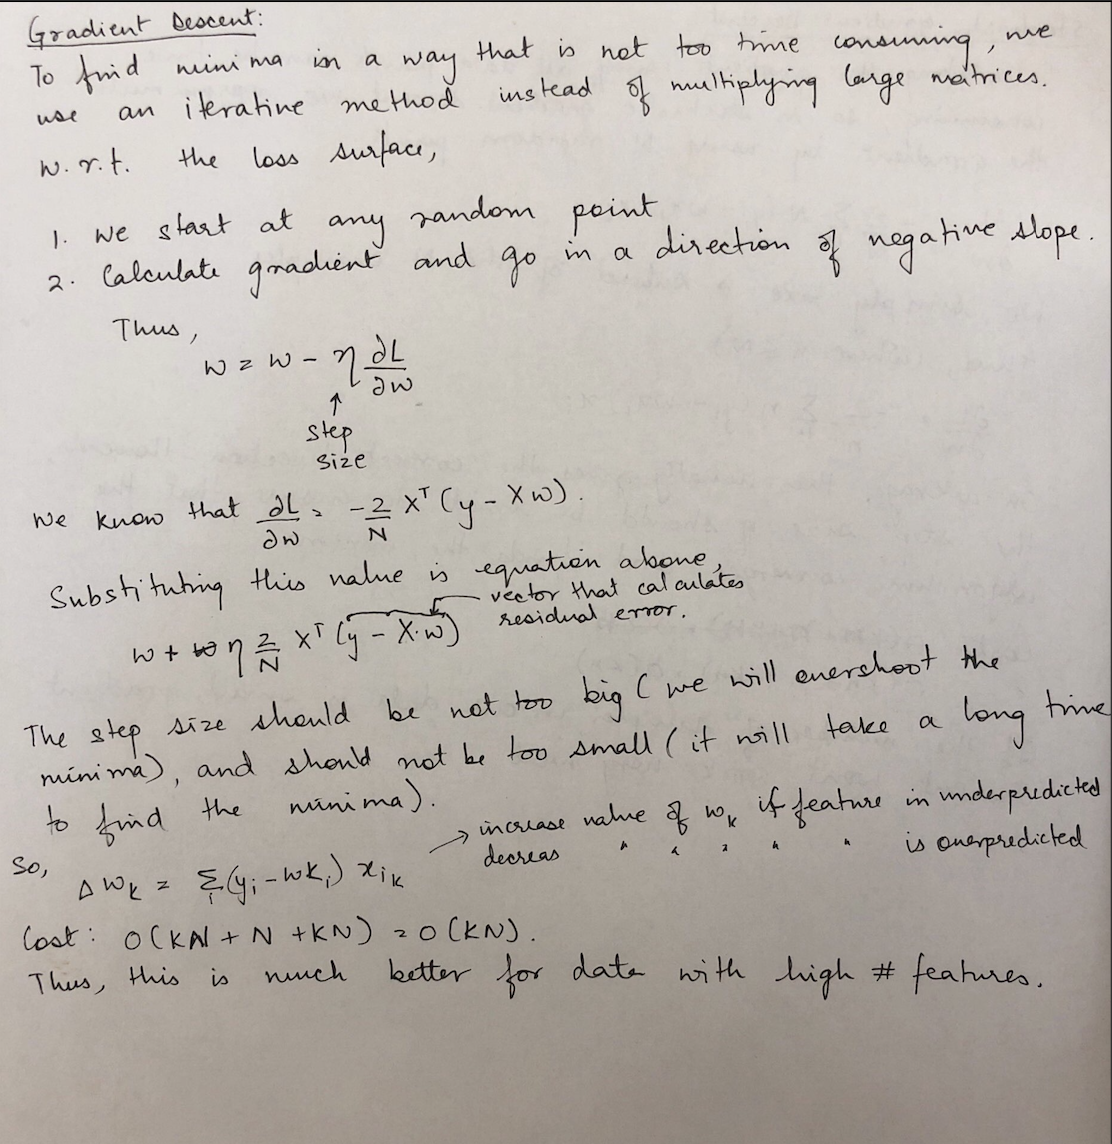 Gradient Descent:
To find minima in a way that is not too time consuming, we
use an iterative method instead of multiplying large matrices.
w.r.t. the loss surface,
1. We start at any random point
2. Calculate gradient and go in a direction of negative slope.
Thus,
w = w - η ∂L/∂w
↑
step
size
We know that ∂L/∂w = -2/N Xᵀ(y - Xw).
Substituting this value is equation above,
vector that calculates
residual error.
w + η 2/N Xᵀ(y - X·w)
The step size should be not too big (we will overshoot the
minima), and should not be too small (it will take a long time
to find the minima).
→ increase value of wₖ if feature in underpredicted
decreas " " " " " is overpredicted
So,
Δwₖ = Σᵢ(yᵢ - wkᵢ) xᵢₖ
Cost: O(KN + N + KN) = O(KN).
Thus, this is much better for data with high # features.